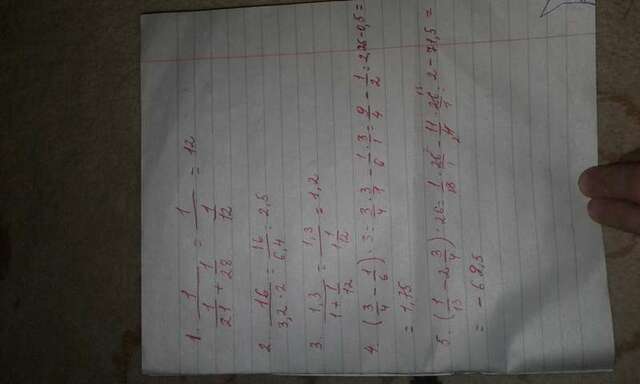 1. 1/(1/21 + 1/28) = 1/(1/12) = 12
2. 16/(3,2 · 2) = 16/6,4 = 2,5
3. 1,3/(1 + 1/12) = 1,3/(1 1/12) = 1,2
4. (3/4 - 1/6) · 3 = 3/4 · 3/1 - 1/6 · 3/1 = 9/4 - 1/2 = 2,25 - 0,5 =
= 1,75
5. (1/13 - 2 3/4) · 26 = 1/13 · 26/1 - 11/4 · 26/1 = 2 - 71,5 =
= - 69,5